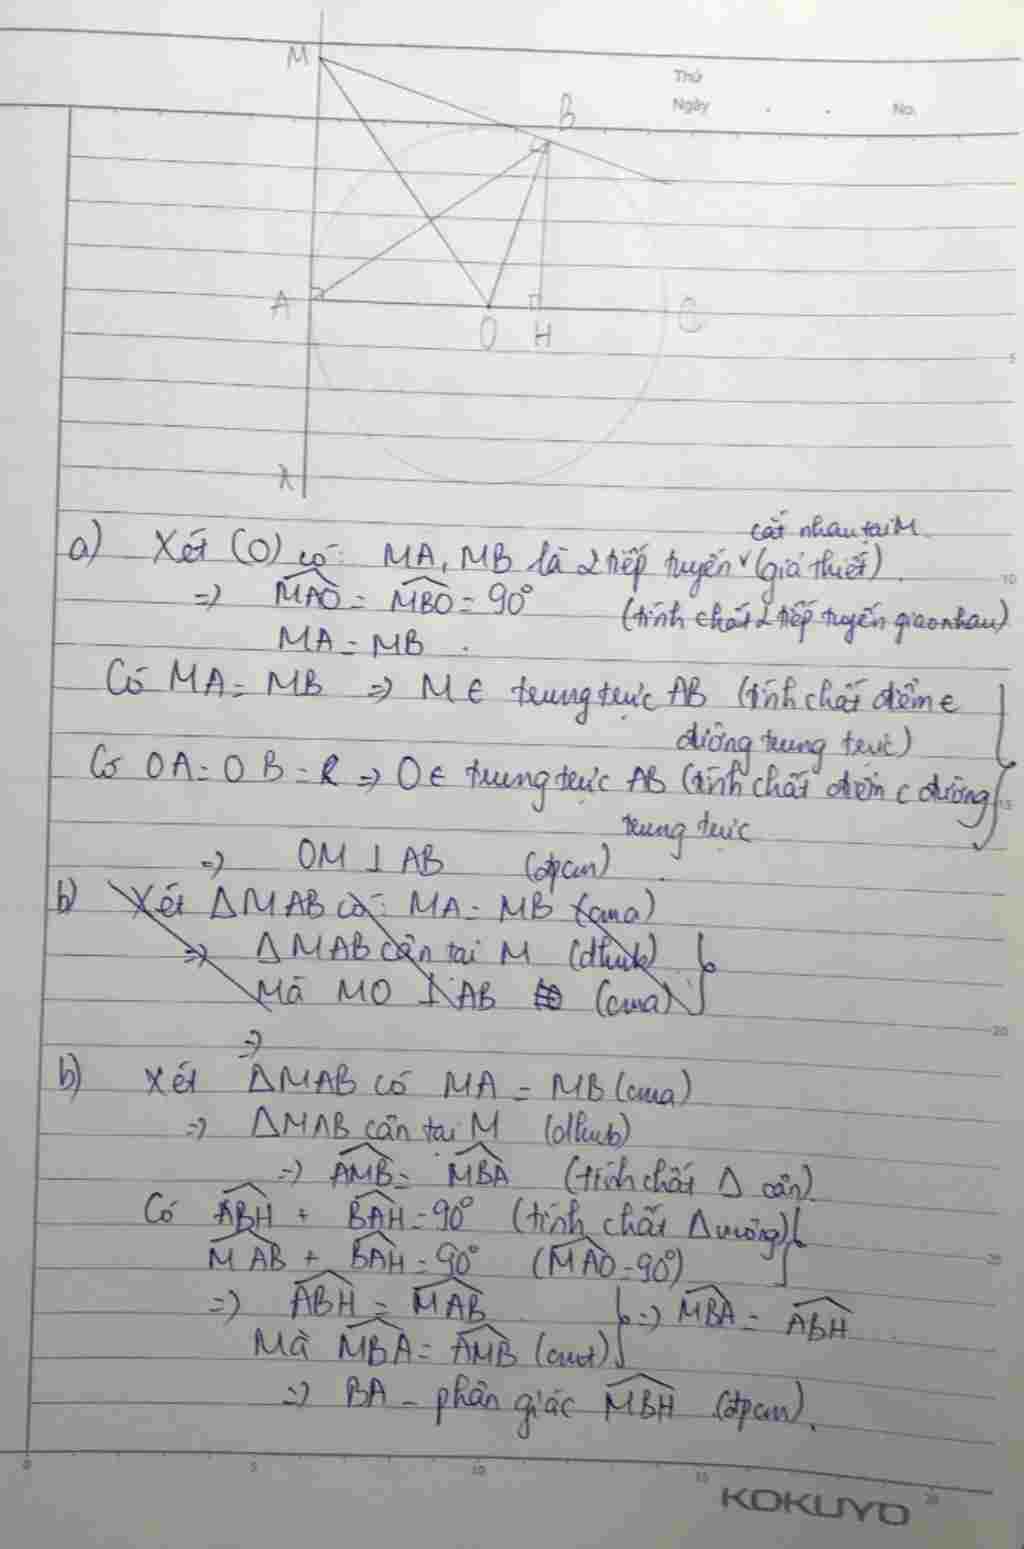 M
Thứ
Ngày . . No.
B
A
O H C
x
5
a) Xét (O) có: MA, MB là 2 tiếp tuyến cắt nhau tại M (giả thiết).
10
=> MAO = MBO = 90° (tính chất 2 tiếp tuyến giao nhau)
MA = MB.
Có MA = MB => M ∈ trung trực AB (tính chất điểm ∈
đường trung trực)
Có OA = OB = R => O ∈ trung trực AB (tính chất điểm ∈ đường
15
trung trực
=> OM ⊥ AB (đpcm).
b) Xét ΔMAB có: MA = MB (cma)
=> ΔMAB cân tại M (dhnb)
Mà MO ⊥ AB (cma)
20
=>
b) Xét ΔMAB có MA = MB (cma)
=> ΔMAB cân tại M (dhnb)
=> AMB = MBA (tính chất Δ cân).
Có ABH + BAH = 90° (tính chất Δ vuông)
MAB + BAH = 90° (MAO = 90°)
=> ABH = MAB => MBA = ABH
Mà MBA = AMB (cmt)
=> BA - phân giác MBH (đpcm).
0 5 10 15 20
KOKUYO